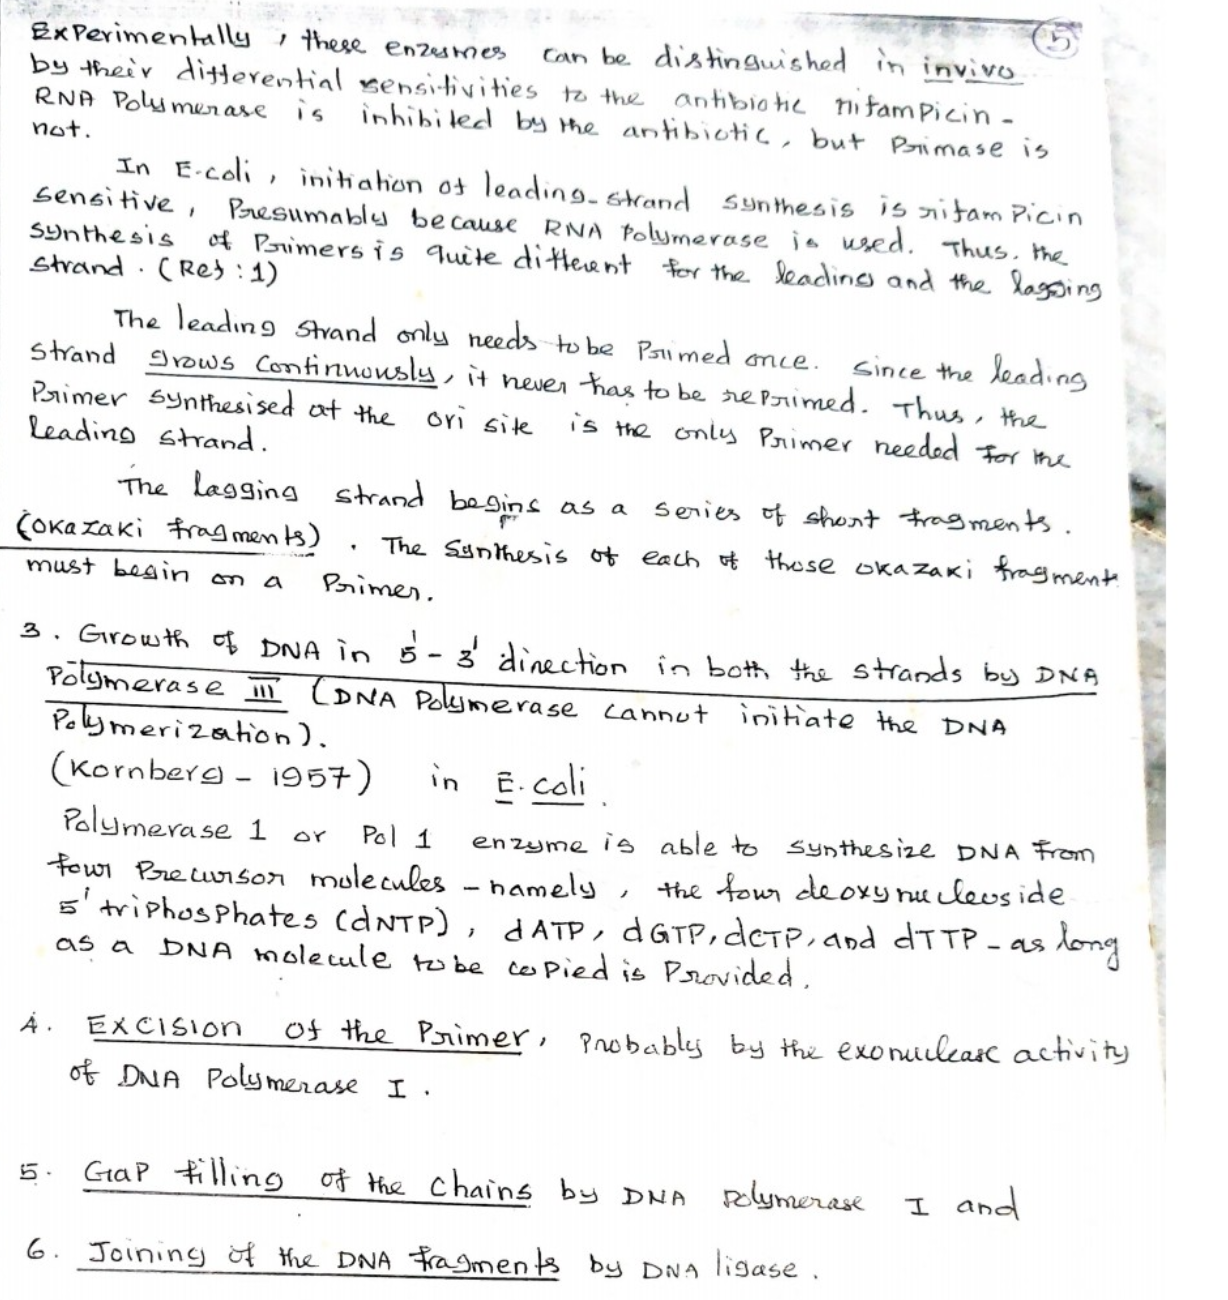 5
Experimentally, these enzymes can be distinguished in invivo
by their differential sensitivities to the antibiotic rifampicin -
RNA Polymerase is inhibited by the antibiotic, but Primase is
not.
In E.coli, initiation of leading-strand synthesis is rifampicin
sensitive, Presumably because RNA Polymerase is used. Thus, the
synthesis of Primers is quite different for the leading and the lagging
strand. (Ref:1)
The leading strand only needs to be Primed once. Since the leading
strand grows continuously, it never has to be reprimed. Thus, the
Primer synthesised at the ori site is the only Primer needed for the
leading strand.
The lagging strand begins as a series of short fragments.
(Okazaki fragments). The synthesis of each of those okazaki fragment
must begin on a Primer.
3. Growth of DNA in 5'-3' direction in both the strands by DNA
Polymerase III (DNA Polymerase cannot initiate the DNA
Polymerization).
(Kornberg - 1957) in E.coli.
Polymerase 1 or Pol 1 enzyme is able to synthesize DNA from
four Precursor molecules - namely, the four deoxynucleoside
5' triphosphates (dNTP), dATP, dGTP, dCTP, and dTTP - as long
as a DNA molecule to be copied is Provided.
4. Excision of the Primer, Probably by the exonuclease activity
of DNA Polymerase I.
5. Gap filling of the chains by DNA Polymerase I and
6. Joining of the DNA fragments by DNA ligase.